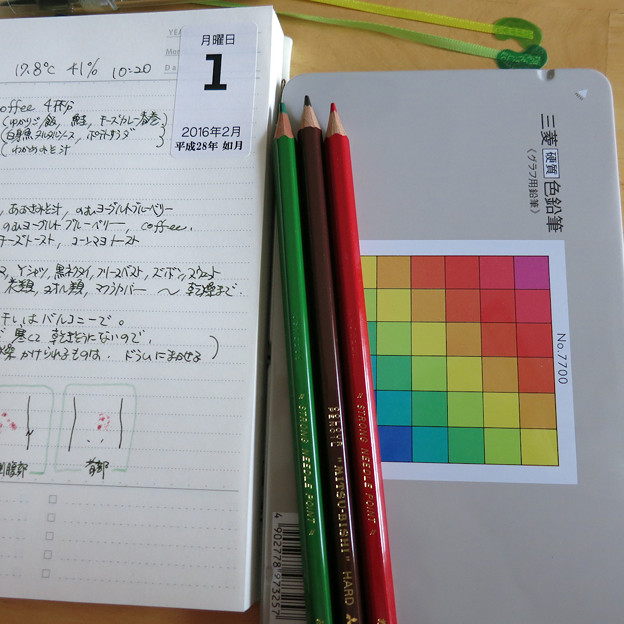 YEA
Mon
Da
17.8℃ 41% 10:20
月曜日
1
2016年2月
平成28年 如月
coffee 4杯分
(ゆかりご飯, 鮭, チーズカレー春巻)
ポテトサラダ
(わかめみそ汁
, のむヨーグルトブルーベリー
のむヨーグルトブルーベリー, coffee.
チーズトースト, コーンマヨトースト
, Yシャツ, 黒ネクタイ, フリースベスト, ズボン, スウェット
衣類, タオル類, マフラカバー 〜 乾燥まで.
干しはバルコニーで。
寒くて 乾きそうにないので,
かけられるものは. ドラムにまかせる
背部
三菱 硬質 色鉛筆
《グラフ用鉛筆》
No.7700
STRONG NEEDLE POINT
COLOUR PENCIL "MITSU-BISHI" HARD
STRONG NEEDLE POINT
4 902778 973257